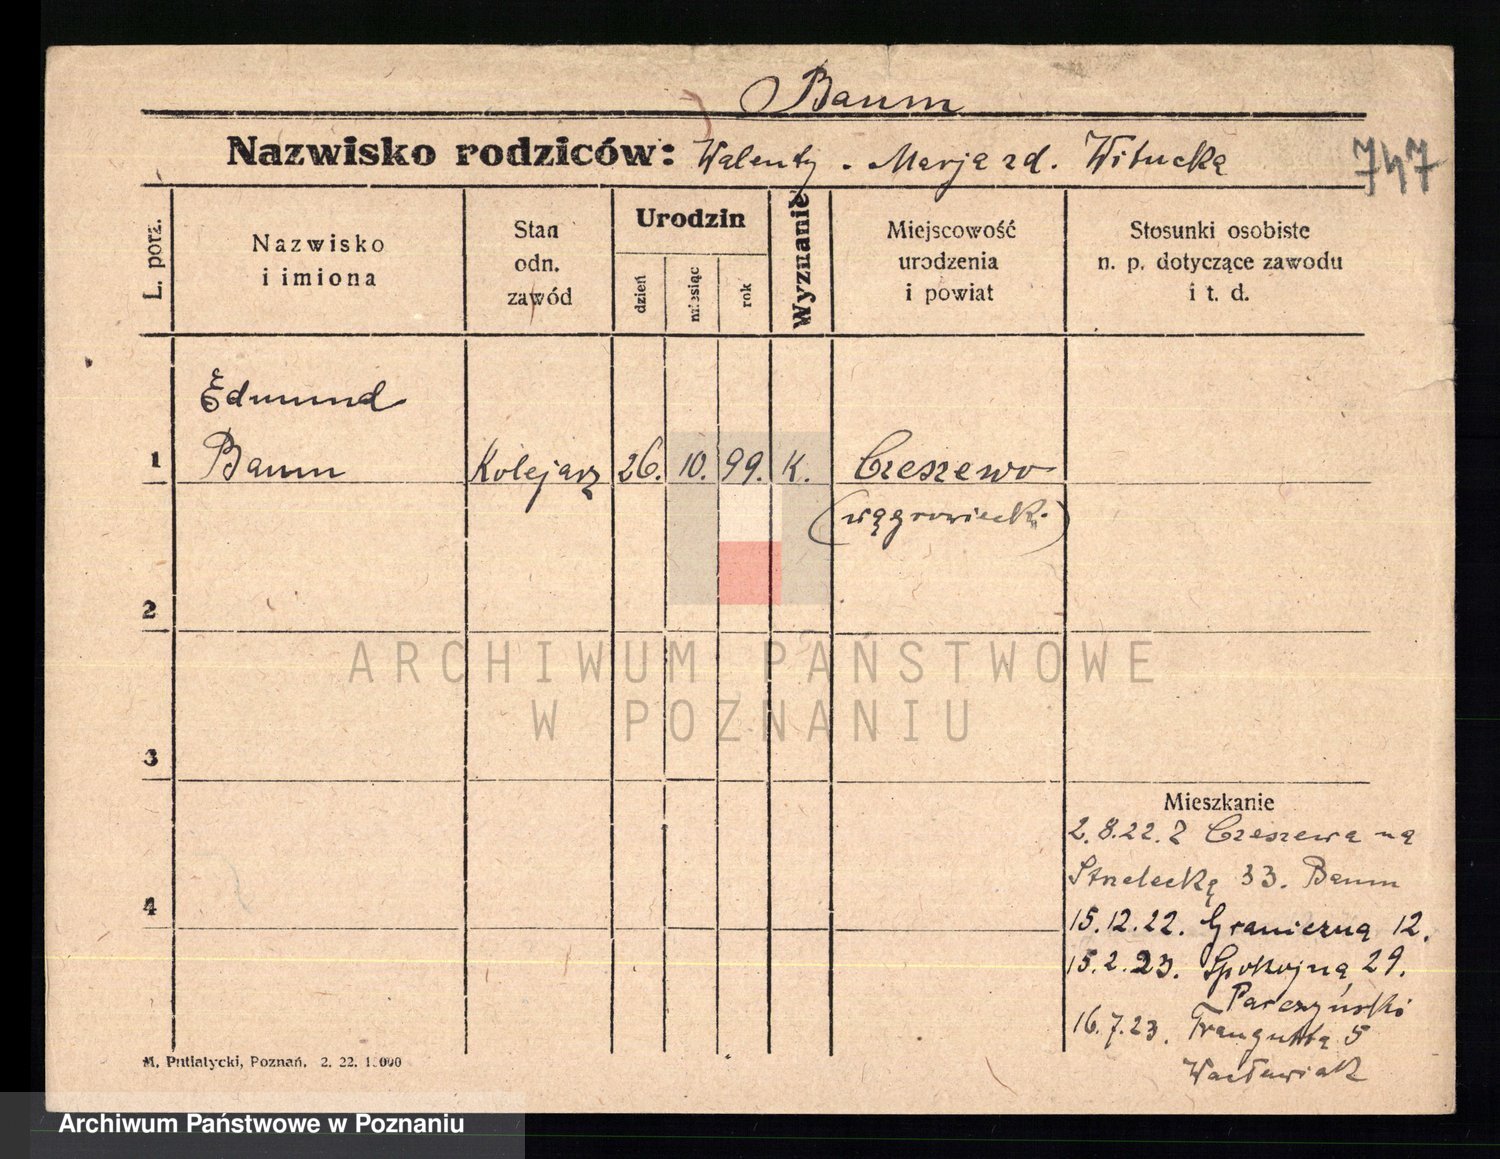 Baum
Nazwisko rodziców: Walenty . Marja zd. Witucka
747
L. porz.
Nazwisko
i imiona
Stan
odn.
zawód
Urodzin
dzień
miesiąc
rok
Wyznanie
Miejscowość
urodzenia
i powiat
Stosunki osobiste
n. p. dotyczące zawodu
i t. d.
Edmund
1 Baum Kolejarz 26. 10. 99. K. Czeszewo
(wągrowieck.)
2
ARCHIWUM PAŃSTWOWE
W POZNANIU
3
Mieszkanie
2.8.22. Z Czeszewa na
Strzelecką 33. Baum
4
15.12.22. Graniczną 12.
15.2.23. Spokojną 29.
Parczyński
16.7.23. Traugutta 5
Wacławiak
M. Putiatycki, Poznań. 2. 22. 1.000
Archiwum Państwowe w Poznaniu